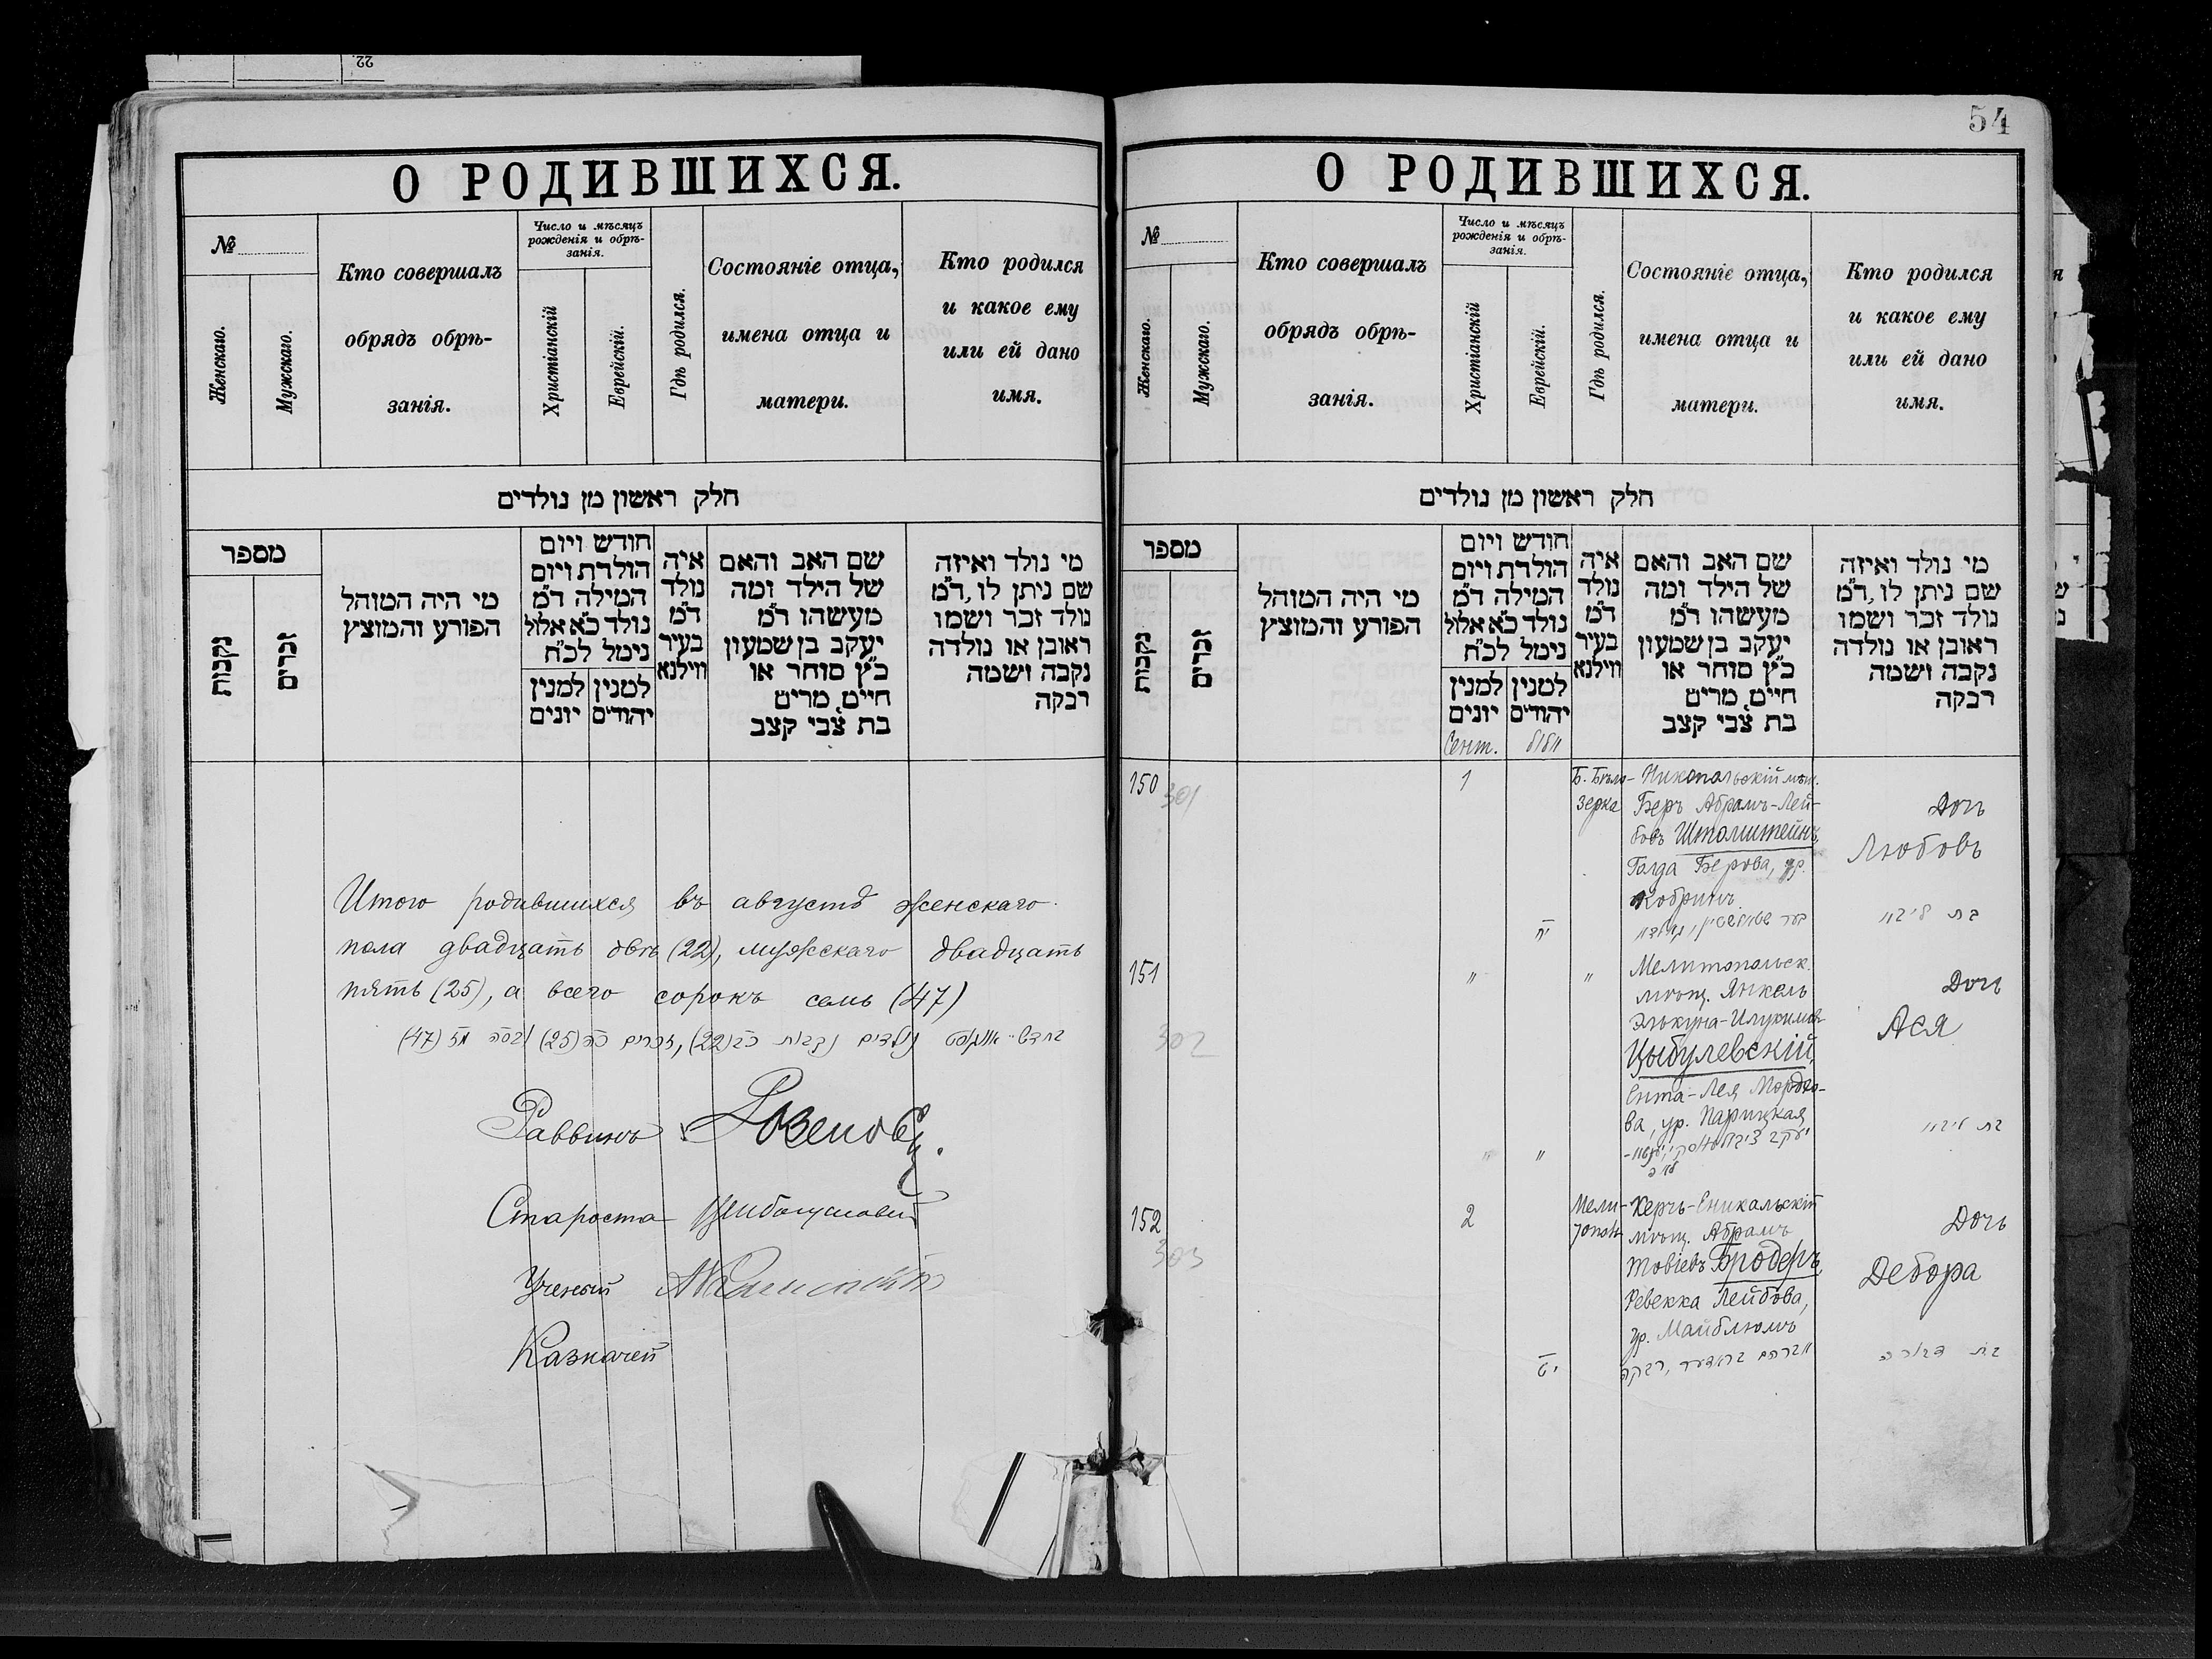 22.
О РОДИВШИХСЯ.
№
Женскаго.
Мужскаго.
Кто совершалъ
обрядъ обрѣ-
занія.
Число и мѣсяцъ
рожденія и обрѣ-
занія.
Христіанскій
Еврейскій.
Гдѣ родился.
Состояніе отца,
имена отца и
матери.
Кто родился
и какое ему
или ей дано
имя.
חלק ראשון מן נולדים
מספר
נקבות
זכרים
מי היה המוהל
הפורע והמוצץ
חודש ויום
הולדת ויום
המילה ד"מ
נולד כ"א אלול
נימל לכ"ח
למנין יונים
למנין יהודים
איה
נולד
ד"מ
בעיר
ווילנא
שם האב והאם
של הילד ומה
מעשהו ד"מ
יעקב בן שמעון
כ"ץ סוחר או
חיים, מרים
בת צבי קצב
מי נולד ואיזה
שם ניתן לו, ד"מ
נולד זכר ושמו
ראובן או נולדה
נקבה ושמה
רבקה
Итого родившихся въ августѣ женскаго
пола двадцать двѣ (22), мужскаго двадцать
пять (25), а всего сорокъ семь (47)
בחדש אוגוסט נולדים נקבות כב (22), זכרים כה (25) ובסה מז (47)
Раввинъ
Староста
Ученый
Казначей
54
О РОДИВШИХСЯ.
№
Женскаго.
Мужскаго.
Кто совершалъ
обрядъ обрѣ-
занія.
Число и мѣсяцъ
рожденія и обрѣ-
занія.
Христіанскій
Еврейскій.
Гдѣ родился.
Состояніе отца,
имена отца и
матери.
Кто родился
и какое ему
или ей дано
имя.
חלק ראשון מן נולדים
מספר
נקבות
זכרים
מי היה המוהל
הפורע והמוצץ
חודש ויום
הולדת ויום
המילה ד"מ
נולד כ"א אלול
נימל לכ"ח
למנין יונים
למנין יהודים
איה
נולד
ד"מ
בעיר
ווילנא
שם האב והאם
של הילד ומה
מעשהו ד"מ
יעקב בן שמעון
כ"ץ סוחר או
חיים, מרים
בת צבי קצב
מי נולד ואיזה
שם ניתן לו, ד"מ
נולד זכר ושמו
ראובן או נולדה
נקבה ושמה
רבקה
Сент. אלול
150
301
1
Б. Бѣло-
зерка
Никопольскій мѣщ.
Беръ Абрамъ-Лей-
бовъ Штолиштейнъ,
Голда Берова, ур.
Кобринъ.
Дочь
Любовь
יח
בת ליבא
151
302
" "
Мелитопольск.
мѣщ. Янкель
Цыбулевскій,
Ента-Лея Мордко-
ва, ур. Парицкая
Дочь
Ася
"
בת
152
303
2
Мели-
тополь
Керчь-Еникальскій
мѣщ. Абрамъ
Товіевъ Бродеръ,
Ревекка Лейбова,
ур. Майблюмъ
Дочь
Дебора
יט
אברהם בראדער, רבקה
בת דבורה